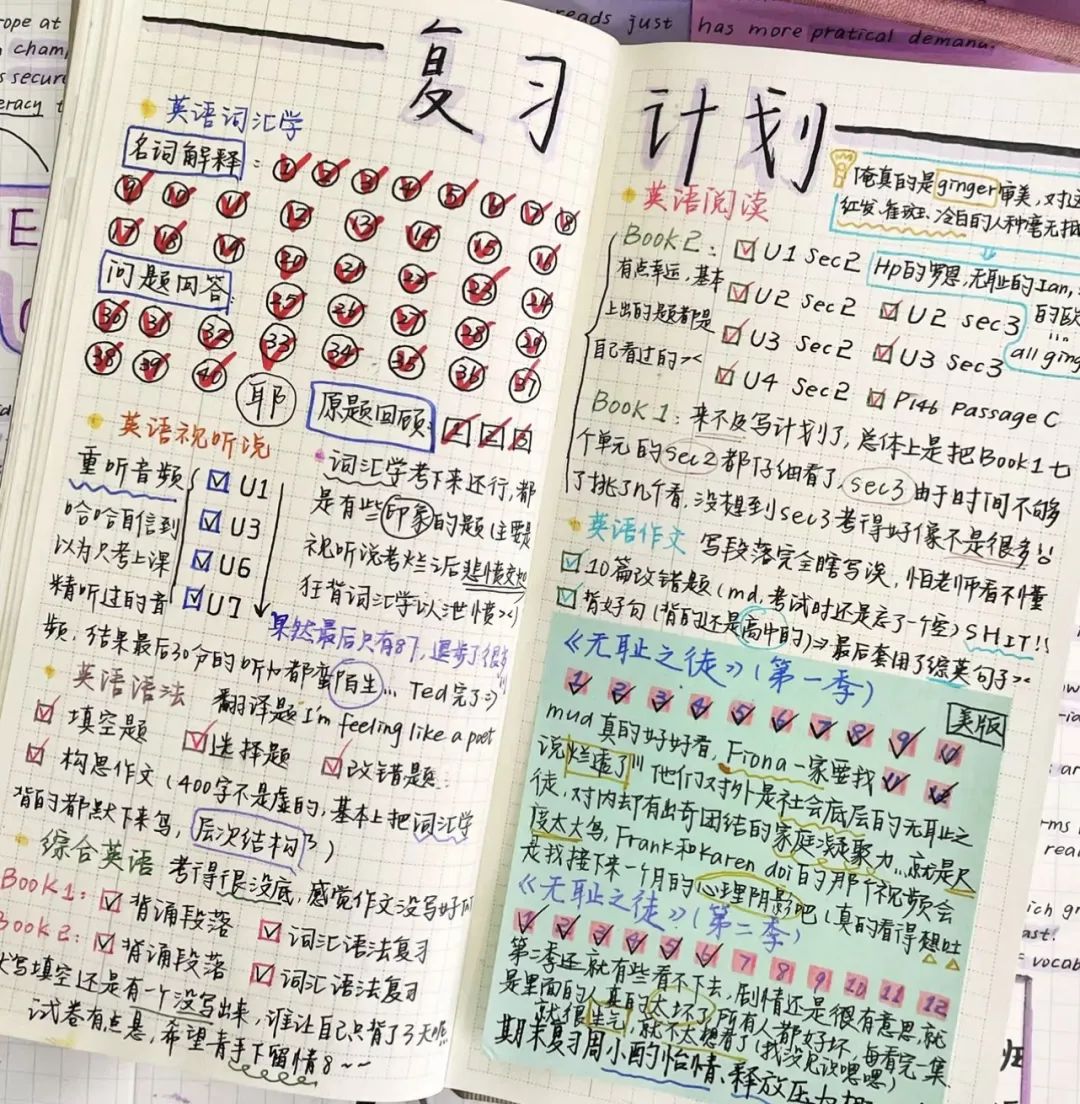 复习计划
英语词汇学
名词解释: 1 2 3 4 5 6 7 8
9 10 11 12 13 14 15 16
17 18 19 20 21 22 23 24
问题回答: 25 26 27 28 29
30 31 32 33 34 35 36 37
38 39 40
耶
原题回顾: 1 2 3
英语视听说
重听音频
U1
U3
U6
U7
哈哈自信到
以为只考上课
精听过的音
频,结果最后30分的听力都蛮陌生... Ted完了:)
翻译题 I'm feeling like a poet
词汇学考下来还行,都
是有些印象的题(主要是
视听说考烂之后悲愤交加
狂背词汇学以泄愤><)
果然最后只有87,退步了很多
英语语法
填空题 选择题 改错题:
构思作文(400字不是虚的,基本上把词汇学
背的都默下来鸟,层次结构了)
综合英语 考得很没底,感觉作文没写好
Book1: 背诵段落 词汇语法复习
Book2: 背诵段落 词汇语法复习
填空还是有一个没写出来,谁让自己只背了3天呢
试卷有点悬,希望青手下留情8~~
俺真的是ginger审美,对这
红发、雀斑、冷白的人种毫无抵
Hp的罗恩,无耻的Ian,
的欧
all ging
英语阅读
Book2: U1 Sec2
有点幸运,基本 U2 Sec2 U2 Sec3
上出的题都是 U3 Sec2 U3 Sec3
自己看过的>< U4 Sec2 P146 Passage C
Book1: 来不及写计划了,总体上是把Book1七
个单元的Sec2都仔细看了,sec3由于时间不够
了挑了几个看,没想到sec3考得好像不是很多!!
英语作文 写段落完全瞎写诶,怕老师看不懂
10篇改错题(md,考试时还是忘了一个空)SHIT!!
背好句(背的还是高中的)⇒最后套用了综英句子><
《无耻之徒》(第一季)
美版
1 2 3 4 5 6 7 8 9 10
11 12
mua真的好好看,Fiona一家要我
说烂透了!!!他们对外是社会底层的无耻之
徒,对内却有出奇团结的家庭凝聚力...就是尺
度太大鸟,Frank和Karen doi的那个视频会
是我接下来一个月的心理阴影吧(真的看得想吐
《无耻之徒》(第二季)
1 2 3 4 5 6 7 8 9 10 11 12
第二季还就有些看不下去,剧情还是很有意思,就
是里面的人真的太坏了,所有人都好坏,每看完一集
就很生气,就不太想看了(我没见识嗯嗯)
期末复习周小酌怡情、释放压力
reads just has more pratical demand.